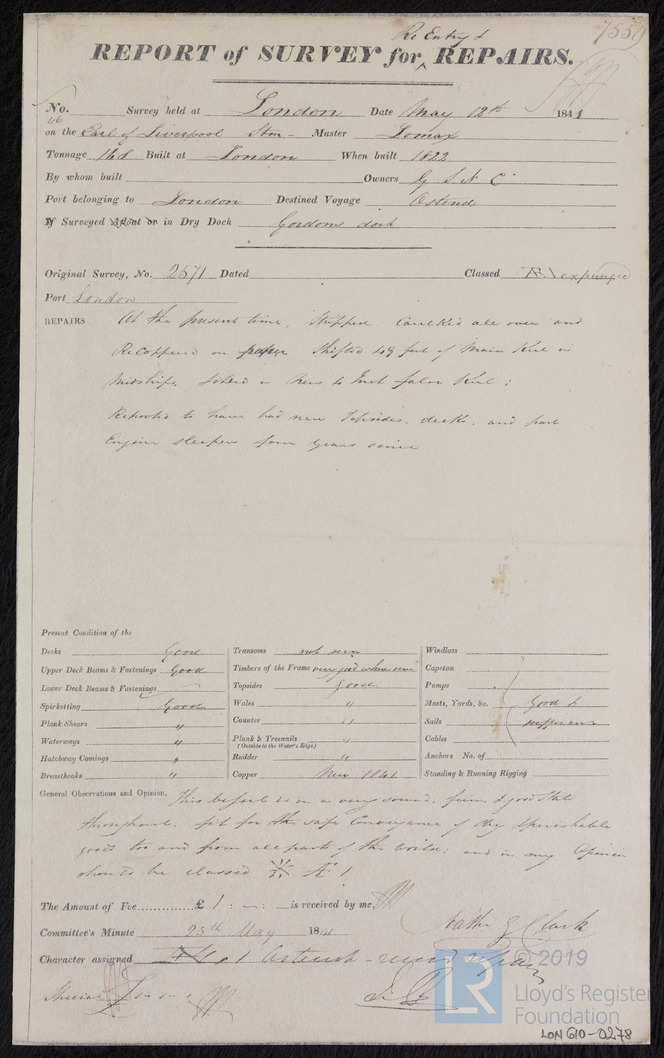 7550
Re Entry &
REPORT of SURVEY for REPAIRS.
No. 46 Survey held at London Date May 12th 1841
on the Earl of Liverpool Stm - Master Lomax
Tonnage 168 Built at London When built 1822
By whom built Owners G S N C
Port belonging to London Destined Voyage Ostend
If Surveyed Afloat or in Dry Dock Gordons dock
Original Survey, No. 2571 Dated Classed Æ1 expunged
Port London
REPAIRS At the present time, Stripped Caulked all over and
Recoppered on paper Shifted 49 feet of Main Keel in
Midships, fitted a New 4 Inch false Keel;
Reported to have had new Topsides, decks, and part
Engine Sleepers four years since
Present Condition of the
Decks Good
Upper Deck Beams & Fastenings Good
Lower Deck Beams & Fastenings
Spirketting Good
Plank Shears "
Waterways "
Hatchway Comings "
Breasthooks "
Transoms not seen
Timbers of the Frame very good where seen
Topsides Good
Wales "
Counter "
Plank & Treenails "
(Outside to the Water's Edge)
Rudder "
Copper New 1841
Windlass
Capstan
Pumps
Masts, Yards, &c. Good &
Sails sufficient
Cables
Anchors No. of
Standing & Running Rigging
General Observations and Opinion, This vessel is in a very sound, firm & good State
throughout, fit for the safe Conveyance of dry & perishable
goods to and from all parts of the world; and in my Opinion
should be classed Æ 1
The Amount of Fee £ 1 : - : - is received by me,
Nathl G Clark
Committee's Minute 25th May 1841
Character assigned 1 Asterisk - repairs
Special
© 2019
LR
Lloyd's Register
Foundation
LON 610-0278